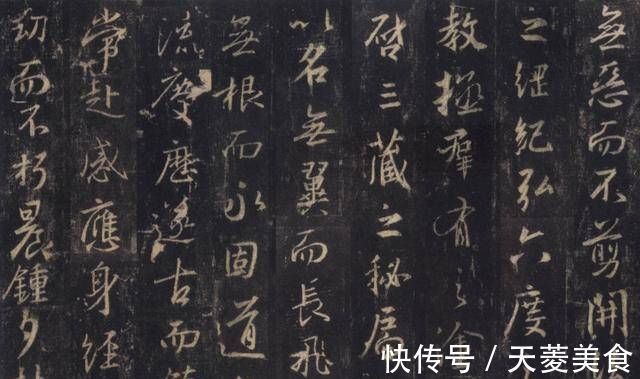 無惡而不剪開
之綱紀弘六度
教拯羣有之塗
啓三藏之秘扃
以名無翼而長飛
無根而永固道
流慶歷遂古而
常赴感應身經
劫而不朽晨鍾夕
快传号/天菱美食